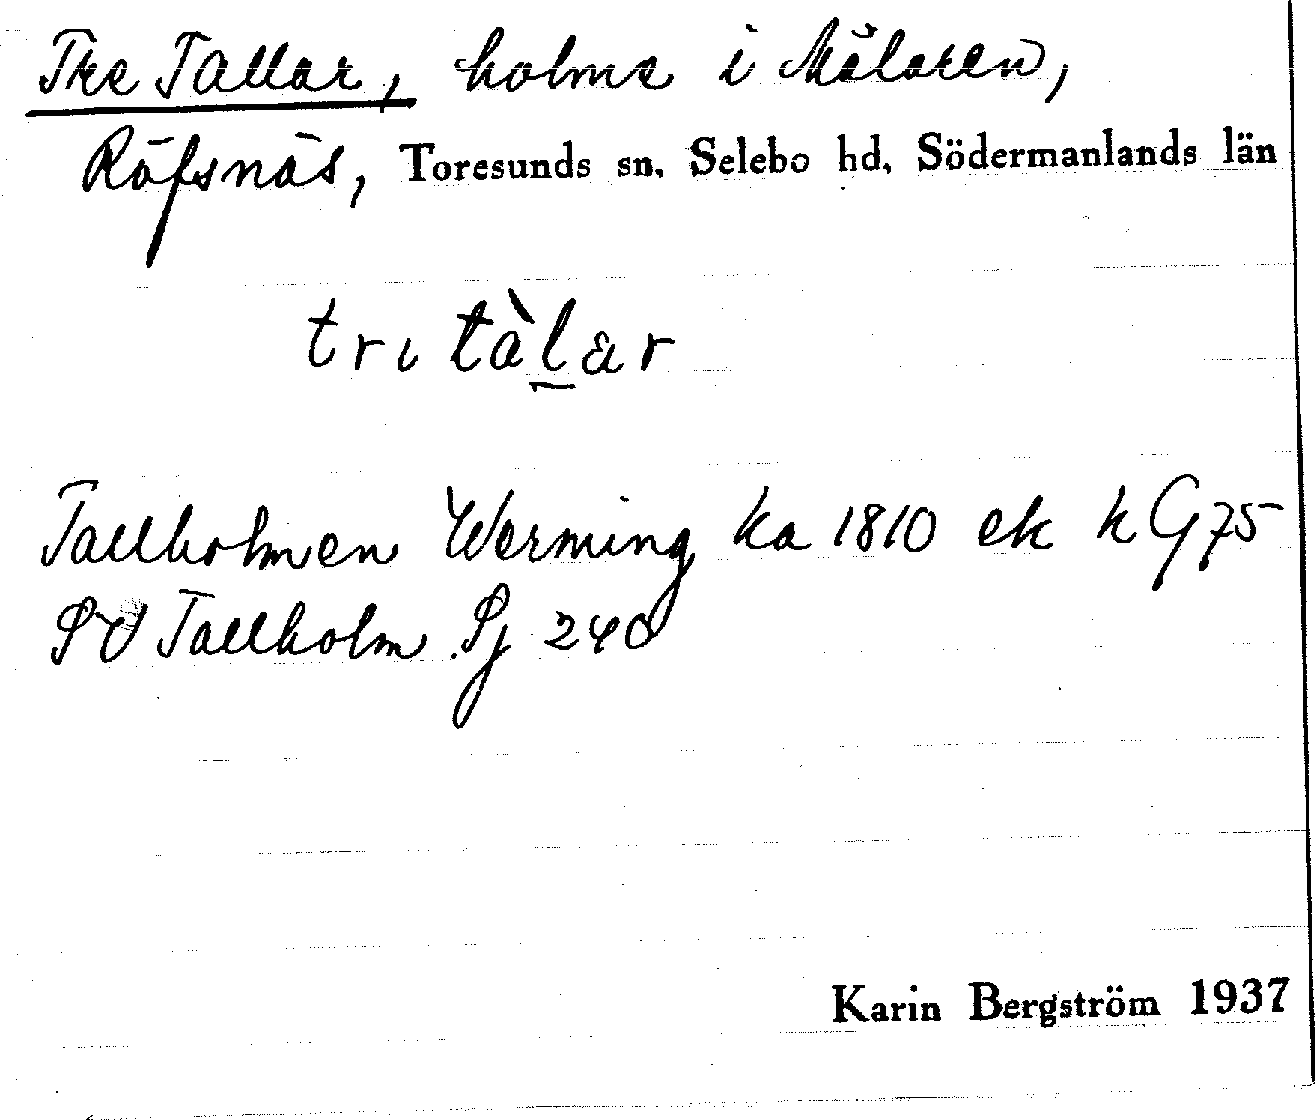 Tre Tallar, holme i Mälaren,
Räfsnäs, Toresunds sn. Selebo hd. Södermanlands län
trı tàlar
Tallholmen Werming ka 1810 ek k G 75
SO Tallholm Sj 240
Karin Bergström 1937